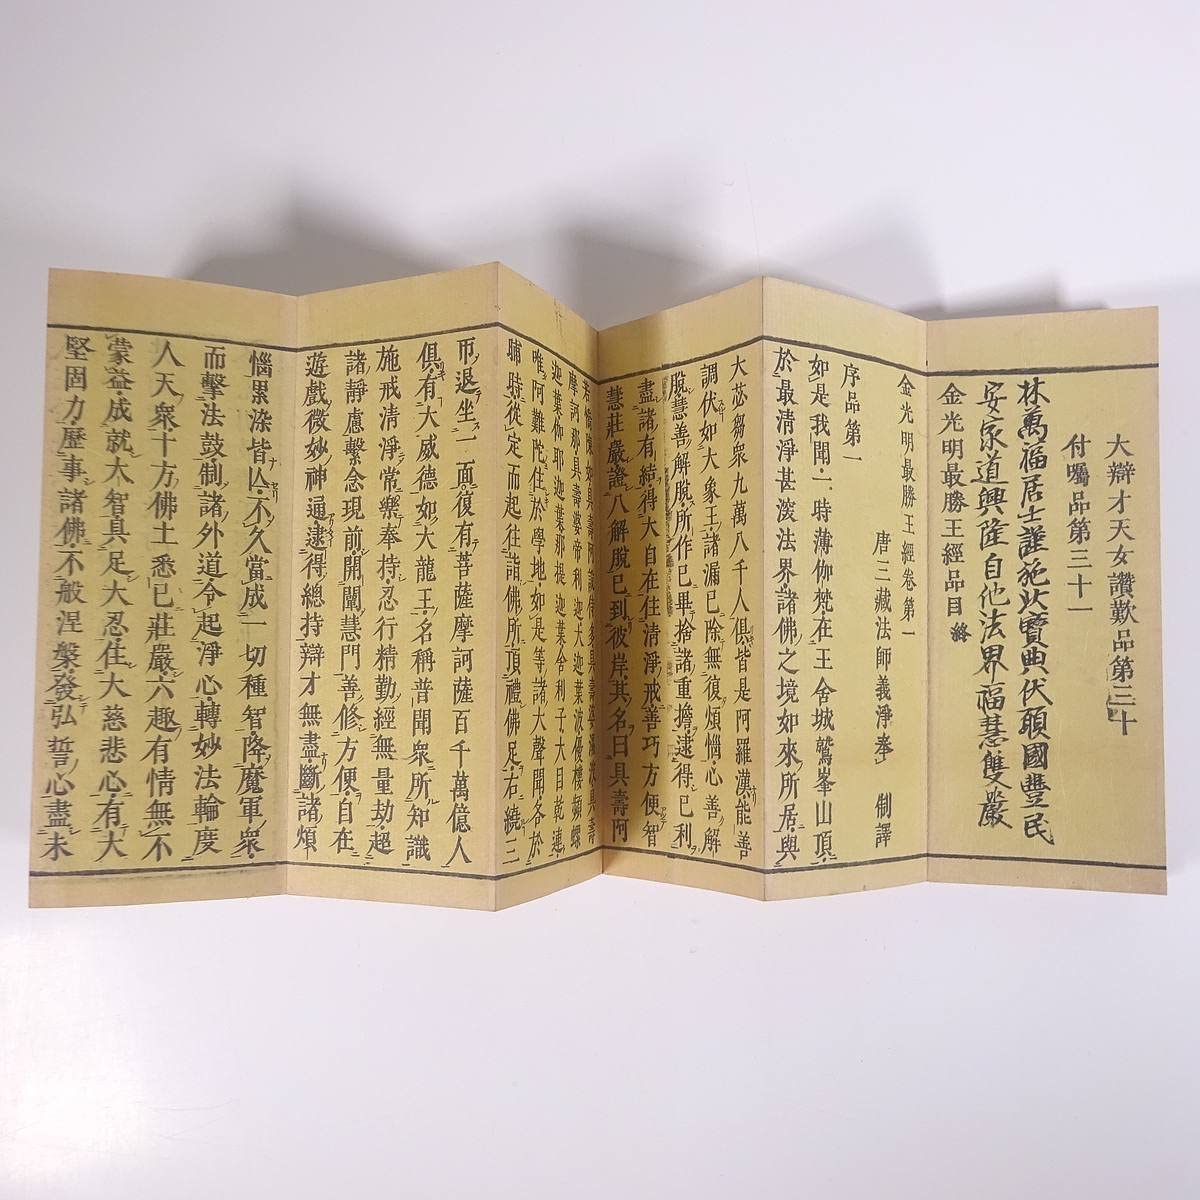 大辯才天女讚歎品第三十
付囑品第三十一
林萬福居士謹施此寶典伏願國豐民
安家道興隆自他法界福慧雙嚴
金光明最勝王經品目終
金光明最勝王經卷第一
唐三藏法師義淨奉 制譯
序品第一
如是我聞一時薄伽梵在王舍城鷲峯山頂
於最清淨甚深法界諸佛之境如來所居與
大苾芻衆九萬八千人俱皆是阿羅漢能善
調伏如大象王諸漏已除無復煩惱心善解
脫慧善解脫所作已畢捨諸重擔逮得已利
盡諸有結得大自在住清淨戒善巧方便智
慧莊嚴證八解脫已到彼岸其名曰具壽阿
若憍陳如具壽
摩訶那具壽婆帝利迦大迦葉波優樓頻螺
迦葉伽耶迦葉那提迦葉舍利子大目乾連
唯阿難陀住於學地如是等諸大聲聞各於
晡時從定而起往詣佛所頂禮佛足右繞三
帀退坐一面復有菩薩摩訶薩百千萬億人
俱有大威德如大龍王名稱普聞衆所知識
施戒清淨常樂奉持忍行精勤經無量劫超
諸靜慮繫念現前開闡慧門善修方便自在
遊戲微妙神通逮得總持辯才無盡斷諸煩
惱累染皆亾不久當成一切種智降魔軍衆
而擊法鼓制諸外道令起淨心轉妙法輪度
人天衆十方佛土悉已莊嚴六趣有情無不
蒙益成就大智具足大忍住大慈悲心有大
堅固力歷事諸佛不般涅槃發弘誓心盡未